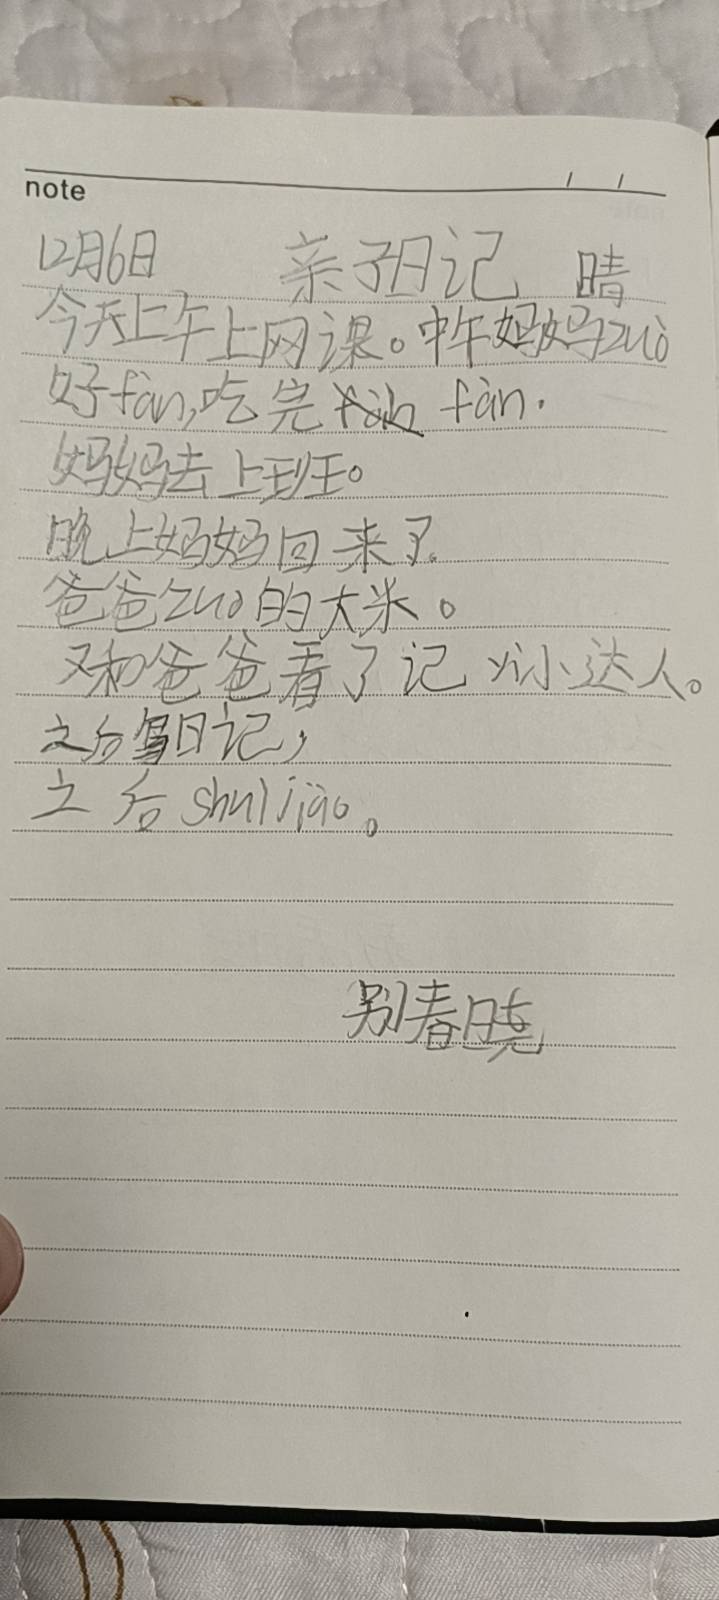 note
12月6日 亲子日记 晴
今天上午上网课。中午妈妈zuò
好fàn,吃完fàn.
妈妈去上班。
晚上妈妈回来了。
爸爸zuò的大米。
又和爸爸看了记yì小达人。
之后写日记,
之后shuìjiào。
别春晓